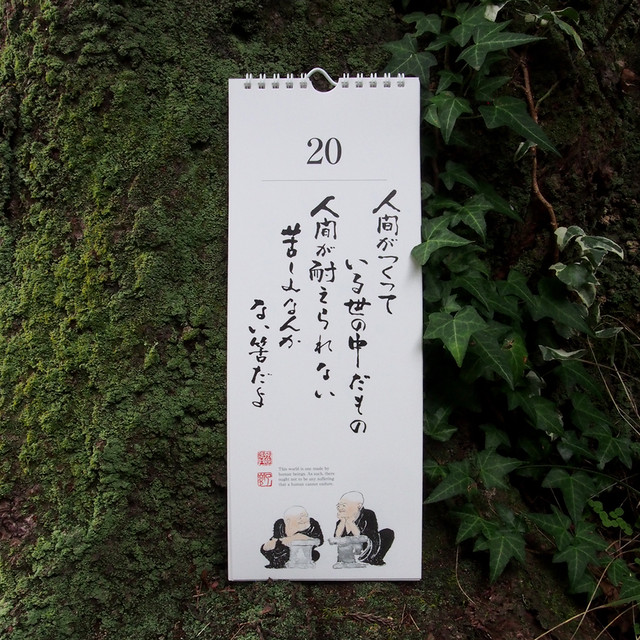 20
人間がつくって
いる世の中だもの
人間が耐えられない
苦しみなんか
ない筈だよ
This world is one made by
human beings. As such, there
ought not to be any suffering
that a human cannot endure.